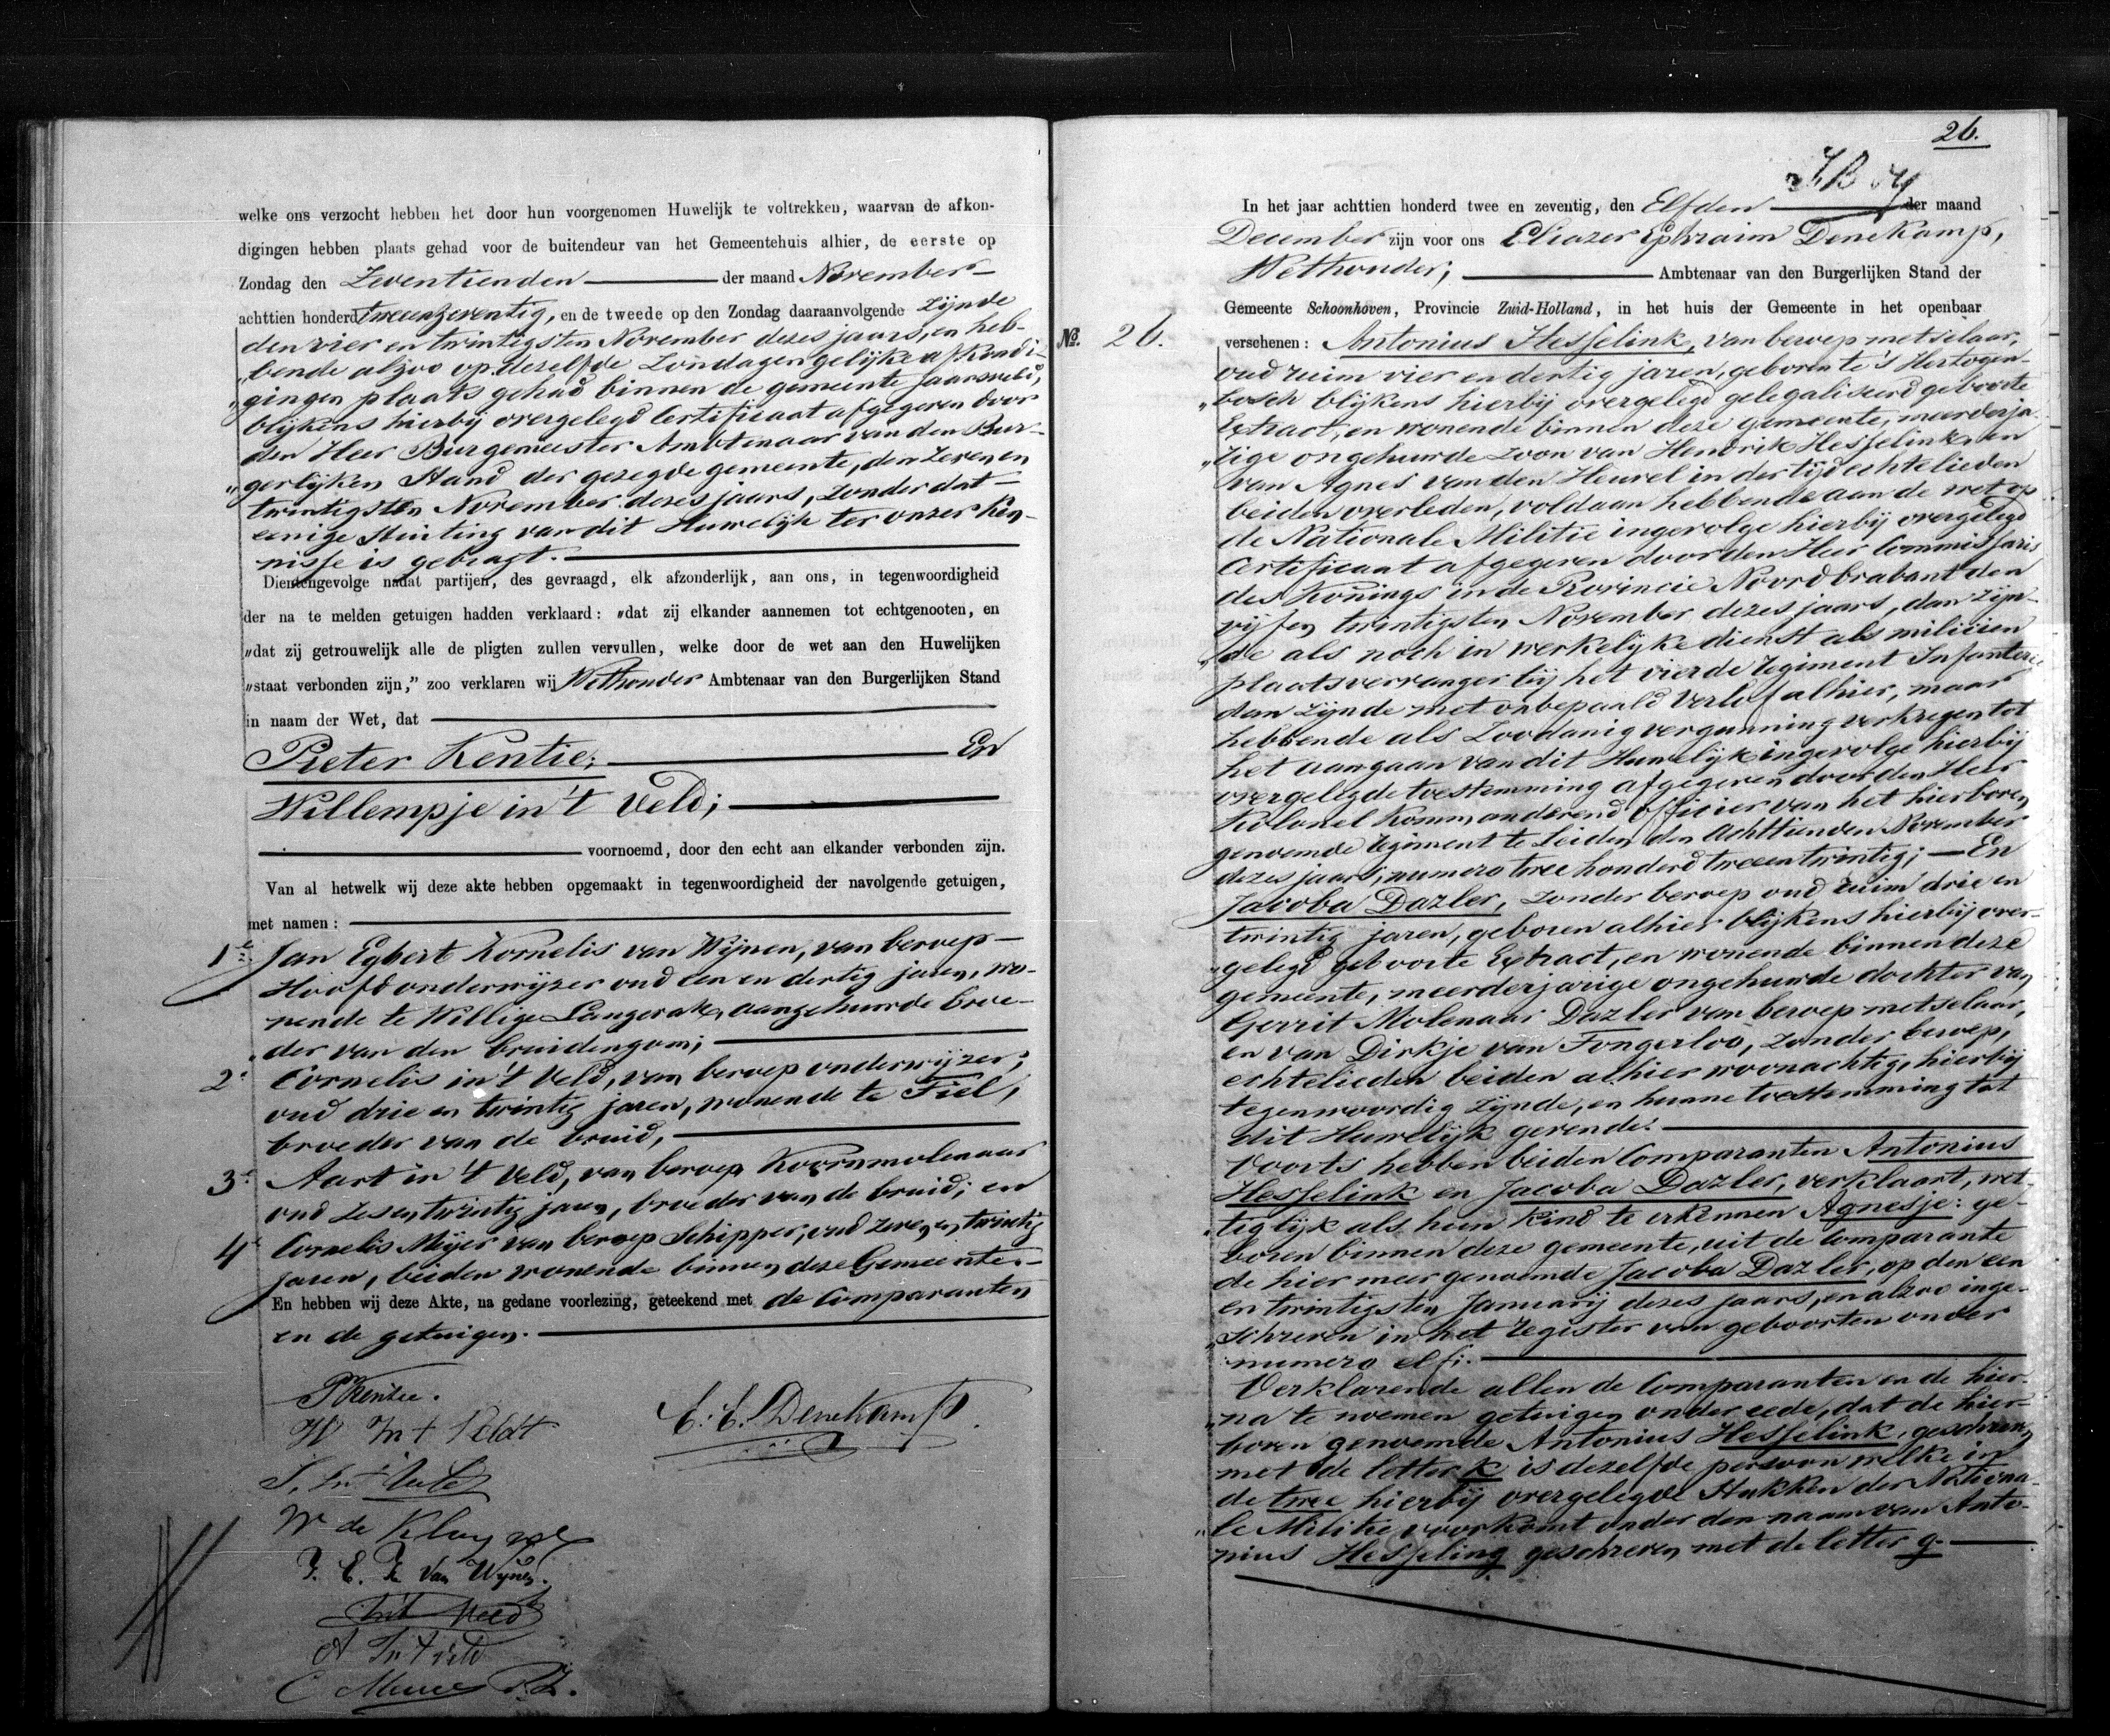 welke ons verzocht hebben het door hun voorgenomen Huwelijk te voltrekken, waarvan de afkon-
digingen hebben plaats gehad voor de buitendeur van het Gemeentehuis alhier, de eerste op
Zondag den Zeventienden der maand November
achttien honderd tweeenzeventig, en de tweede op den Zondag daaraanvolgende zijnde
den vier en twintigsten November dezes jaars, en heb-
"bende alzoo op dezelfde Zondagen gelijke afkondi-
"gingen plaats gehad binnen de gemeente Jaarsveld,
blijkens hierbij overgelegd Certificaat afgegeven door
den Heer Burgemeester Ambtenaar van den Bur-
"gerlijken Stand der gezegde gemeente, den zeven en
twintigsten November dezes jaars, zonder dat
eenige stuiting van dit Huwelijk ter onzer ken-
nisse is gebragt.
Dientengevolge nadat partijen, des gevraagd, elk afzonderlijk, aan ons, in tegenwoordigheid
der na te melden getuigen hadden verklaard: "dat zij elkander aannemen tot echtgenooten, en
"dat zij getrouwelijk alle de pligten zullen vervullen, welke door de wet aan den Huwelijken
"staat verbonden zijn," zoo verklaren wij Wethouder Ambtenaar van den Burgerlijken Stand
in naam der Wet, dat
Pieter Kentie; En
Willempje in 't Veld;
voornoemd, door den echt aan elkander verbonden zijn.
Van al hetwelk wij deze akte hebben opgemaakt in tegenwoordigheid der navolgende getuigen,
met namen:
1e Jan Egbert Kornelis van Wijnen, van beroep
Hoofdonderwijzer oud een en dertig jaren, wo-
nende te Willige Langerak, aangehuwde broe-
"der van den bruidegom;
2e Cornelis in 't Veld, van beroep onderwijzer,
oud drie en twintig jaren, wonende te Tiel,
broeder van de bruid,
3e Aart in 't Veld, van beroep Koornmolenaar
oud zesentwintig jaren, broeder van de bruid; en
4e Cornelis Meijer van beroep Schipper, oud zeven en twintig
jaren, beiden wonende binnen deze Gemeente.
En hebben wij deze Akte, na gedane voorlezing, geteekend met de Comparanten
en de getuigen.
P Kentie.
W In t Veldt
E. E. Denekamp.
W de
J. E. K. van Wijnen.
in t Veld
A In t Veld
C P.Z.
26.
In het jaar achttien honderd twee en zeventig, den Elfden der maand
December zijn voor ons Eliazer Ephraim Denekamp,
Wethouder, Ambtenaar van den Burgerlijken Stand der
Gemeente Schoonhoven, Provincie Zuid-Holland, in het huis der Gemeente in het openbaar
No. 26. verschenen: Antonius Hesselink, van beroep metselaar,
oud ruim vier en dertig jaren, geboren te 's Hertogen-
"bosch blijkens hierbij overgelegd gelegaliseerd geboorte
Extract, en wonende binnen deze gemeente, meerderja-
"rige ongehuwde zoon van Hendrik Hesselink, en
van Agnes van den Heuvel in der tijd echtelieden
beiden overleden, voldaan hebbende aan de wet op
de Nationale Militie ingevolge hierbij overgelegd
Certificaat afgegeven door den Heer Commissaris
des Konings in de Provincie Noordbrabant den
vijfen twintigsten November dezes jaars, dan zijn-
"de als noch in werkelijke dienst als milicien
plaatsvervanger bij het vierde regiment Infanterie
dan zijnde met onbepaald verlof alhier, maar
hebbende als zoodanig vergunning verkregen tot
het aangaan van dit Huwelijk ingevolge hierbij
overgelegde toestemming afgegeven door den Heer
Kolonel Kommanderend officier van het hierboven
genoemde regiment te Leiden den achttienden November
dezes jaars, numero twee honderd tweeentwintig; En
Jacoba Dazler, zonder beroep oud ruim drie en
twintig jaren, geboren alhier blijkens hierbij over-
"gelegd geboorte Extract, en wonende binnen deze
gemeente, meerderjarige ongehuwde dochter van
Gerrit Molenaar Dazler van beroep metselaar,
en van Dirkje van Tongerloo, zonder beroep,
echtelieden beiden alhier woonachtig, hierbij
tegenwoordig zijnde, en hunne toestemming tot
dit Huwelijk gevende.
Voorts hebben beiden Comparanten Antonius
Hesselink en Jacoba Dazler, verklaart, wet-
"tiglijk als hun kind te erkennen Agnesje: ge-
boren binnen deze gemeente, uit de Comparante
de hier meergenoemde Jacoba Dazler, op den een
en twintigsten Januarij dezes jaars, en alzoo inge-
"schreven in het register van geboorten onder
numero elf.
Verklarende allen de Comparanten en de hier-
"na te noemen getuigen onder eede, dat de hier-
boven genoemde Antonius Hesselink, geschreven
met de letter k is dezelfde persoon welke in
de twee hierbij overgelegde Stukken der Nationa-
"le Militie voorkomt onder den naam van Anto-
nius Hesseling geschreven met de letter g.